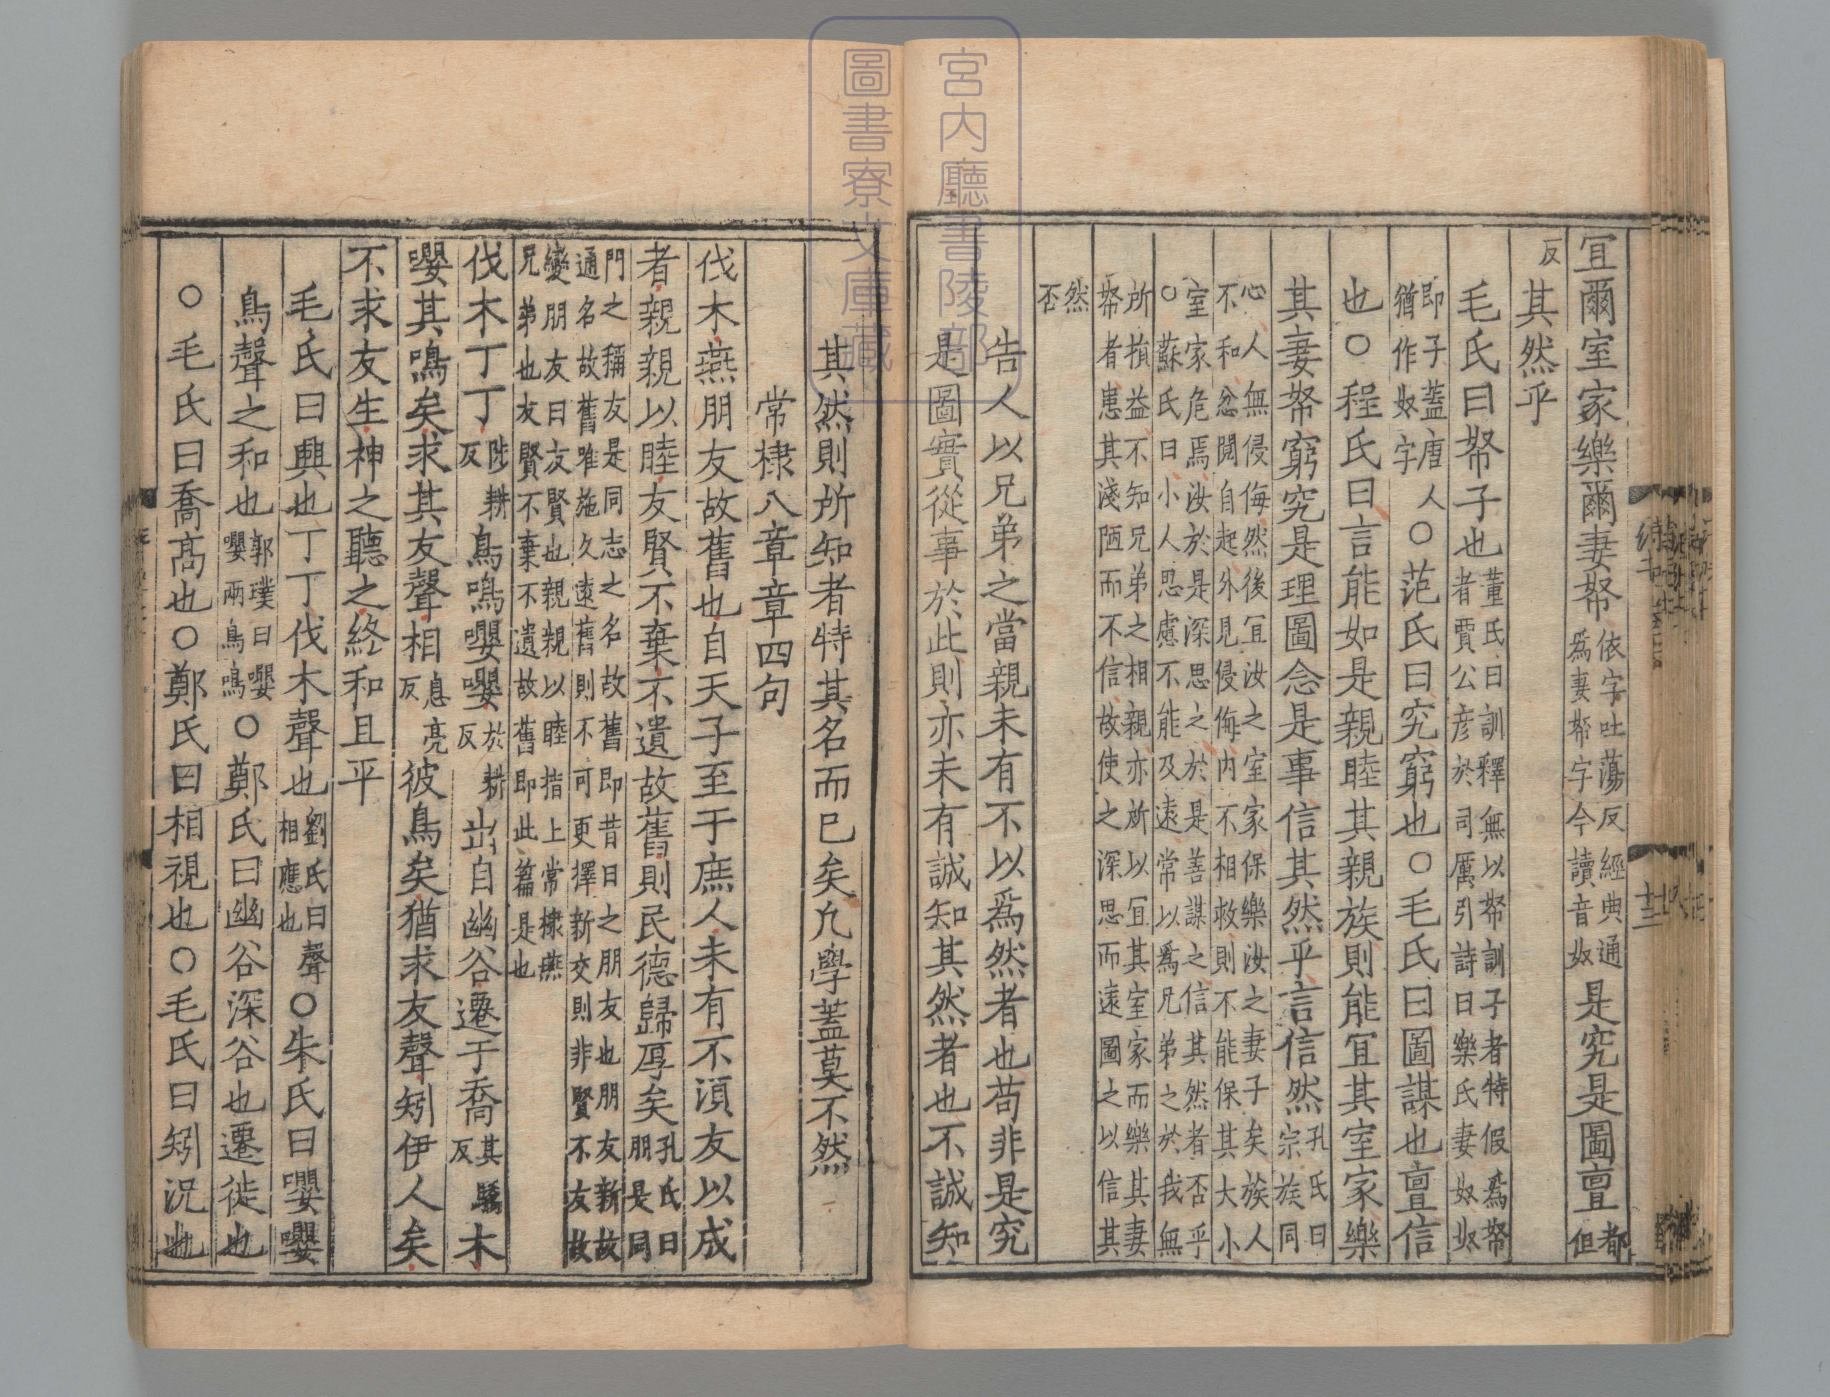 宜爾室家樂爾妻帑依字吐蕩反經典通爲妻帑字今讀音奴是究是圖亶都但
反其然乎
毛氏曰帑子也董氏曰訓釋無以帑訓子者特假爲帑者賈公彦於司厲引詩曰樂氏妻奴奴
即子蓋唐人猶作奴字○范氏曰究窮也○毛氏曰圖謀也亶信
也○程氏曰言能如是親睦其親族則能宜其室家樂
其妻帑窮究是理圖念是事信其然乎言信然孔氏曰宗族同
心人無侵侮然後宜汝之室家保樂汝之妻子矣族人不和忿鬩自起外見侵侮内不相救則不能保其大小
室家危焉汝於是深思之於是善謀之信其然者否乎○蘇氏曰小人思慮不能及遠常以爲兄弟之於我無
所損益不知兄弟之相親亦所以宜其室家而樂其妻帑者患其淺陋而不信故使之深思而遠圖之以信其
然否
告人以兄弟之當親未有不以爲然者也苟非是究
是圖實從事於此則亦未有誠知其然者也不誠知
其然則所知者特其名而已矣凡學蓋莫不然
常棣八章章四句
伐木燕朋友故舊也自天子至于庶人未有不湏友以成
者親親以睦友賢不棄不遺故舊則民德歸厚矣孔氏曰朋是同
門之稱友是同志之名故舊即昔日之朋友也朋友新故通名故舊唯施久遠舊則不可更擇新交則非賢不友故
變朋友曰友賢也親親以睦指上常棣燕兄弟也友賢不棄不遺故舊即此篇是也
伐木丁丁陟耕反鳥鳴嚶嚶於耕反出自幽谷遷于喬其驕反木
嚶其鳴矣求其友聲相息亮反彼鳥矣猶求友聲矧伊人矣
不求友生神之聽之終和且平
毛氏曰興也丁丁伐木聲也劉氏曰聲相應也○朱氏曰嚶嚶
鳥聲之和也郭璞曰嚶嚶兩鳥鳴○鄭氏曰幽谷深谷也遷徙也
○毛氏曰喬高也○鄭氏曰相視也○毛氏曰矧況也
宮内廳書陵部
圖書寮文庫藏